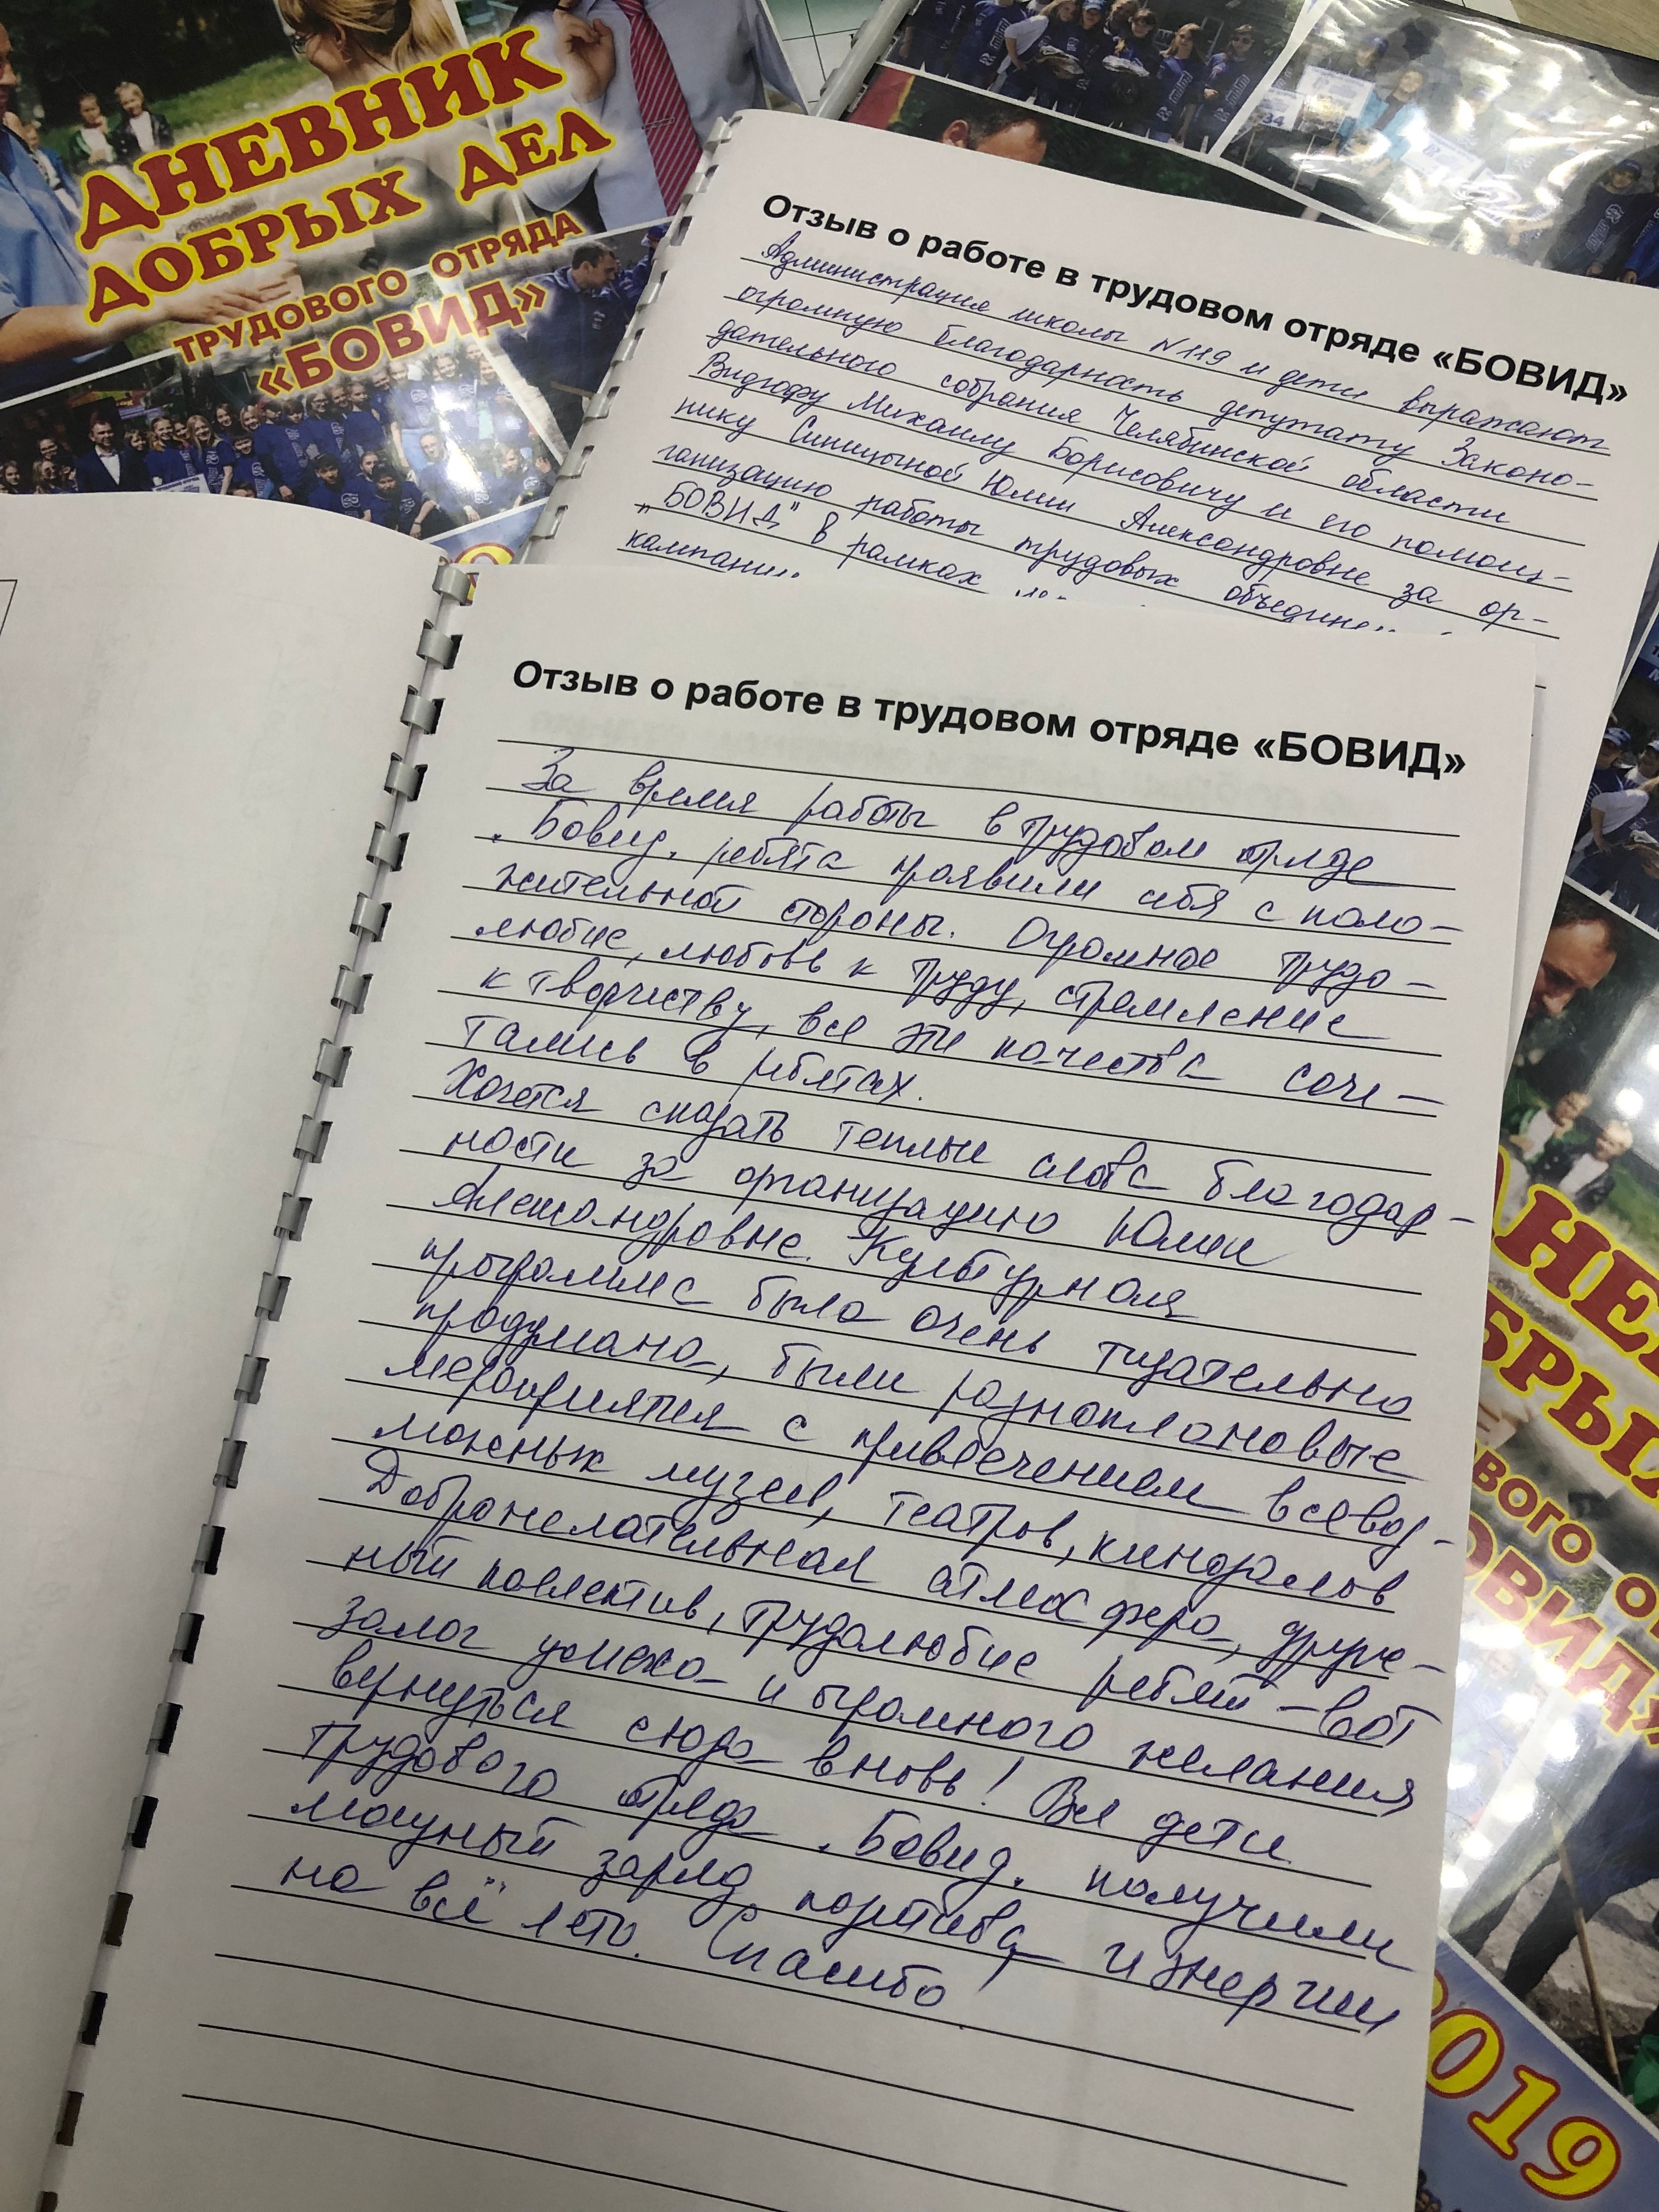 ДНЕВНИК
ДОБРЫХ ДЕЛ
ТРУДОВОГО ОТРЯДА
«БОВИД»
34
Отзыв о работе в трудовом отряде «БОВИД»
Администрация школы №119 и дети выражают
огромную благодарность депутату Законо-
дательного собрания Челябинской области
Видгофу Михаилу Борисовичу и его помощ-
нику Синицыной Юлии Александровне за ор-
ганизацию работы трудовых
„БОВИД" в рамках
кампании
Отзыв о работе в трудовом отряде «БОВИД»
За время работы в трудовом отряде
„Бовид" ребята проявили себя с поло-
жительной стороны. Огромное трудо-
любие, любовь к труду, стремление
к творчеству, все эти качества соче-
тались в ребятах.
Хочется сказать теплые слова благодар-
ности за организацию Юлии
Александровне. Культурная
программа была очень тщательно
продумана, были разноплановые
мероприятия с привлечением всевоз-
можных музеев, театров, кинозалов
Доброжелательная атмосфера, друж-
ный коллектив, трудолюбие ребят – вот
залог успеха и огромного желания
вернуться сюда вновь! Все дети
трудового отряда „Бовид" получили
мощный заряд позитива и энергии
на всё лето. Спасибо!
ДНЕ
БРЫ
ВОГО О
ОВИД»
2019